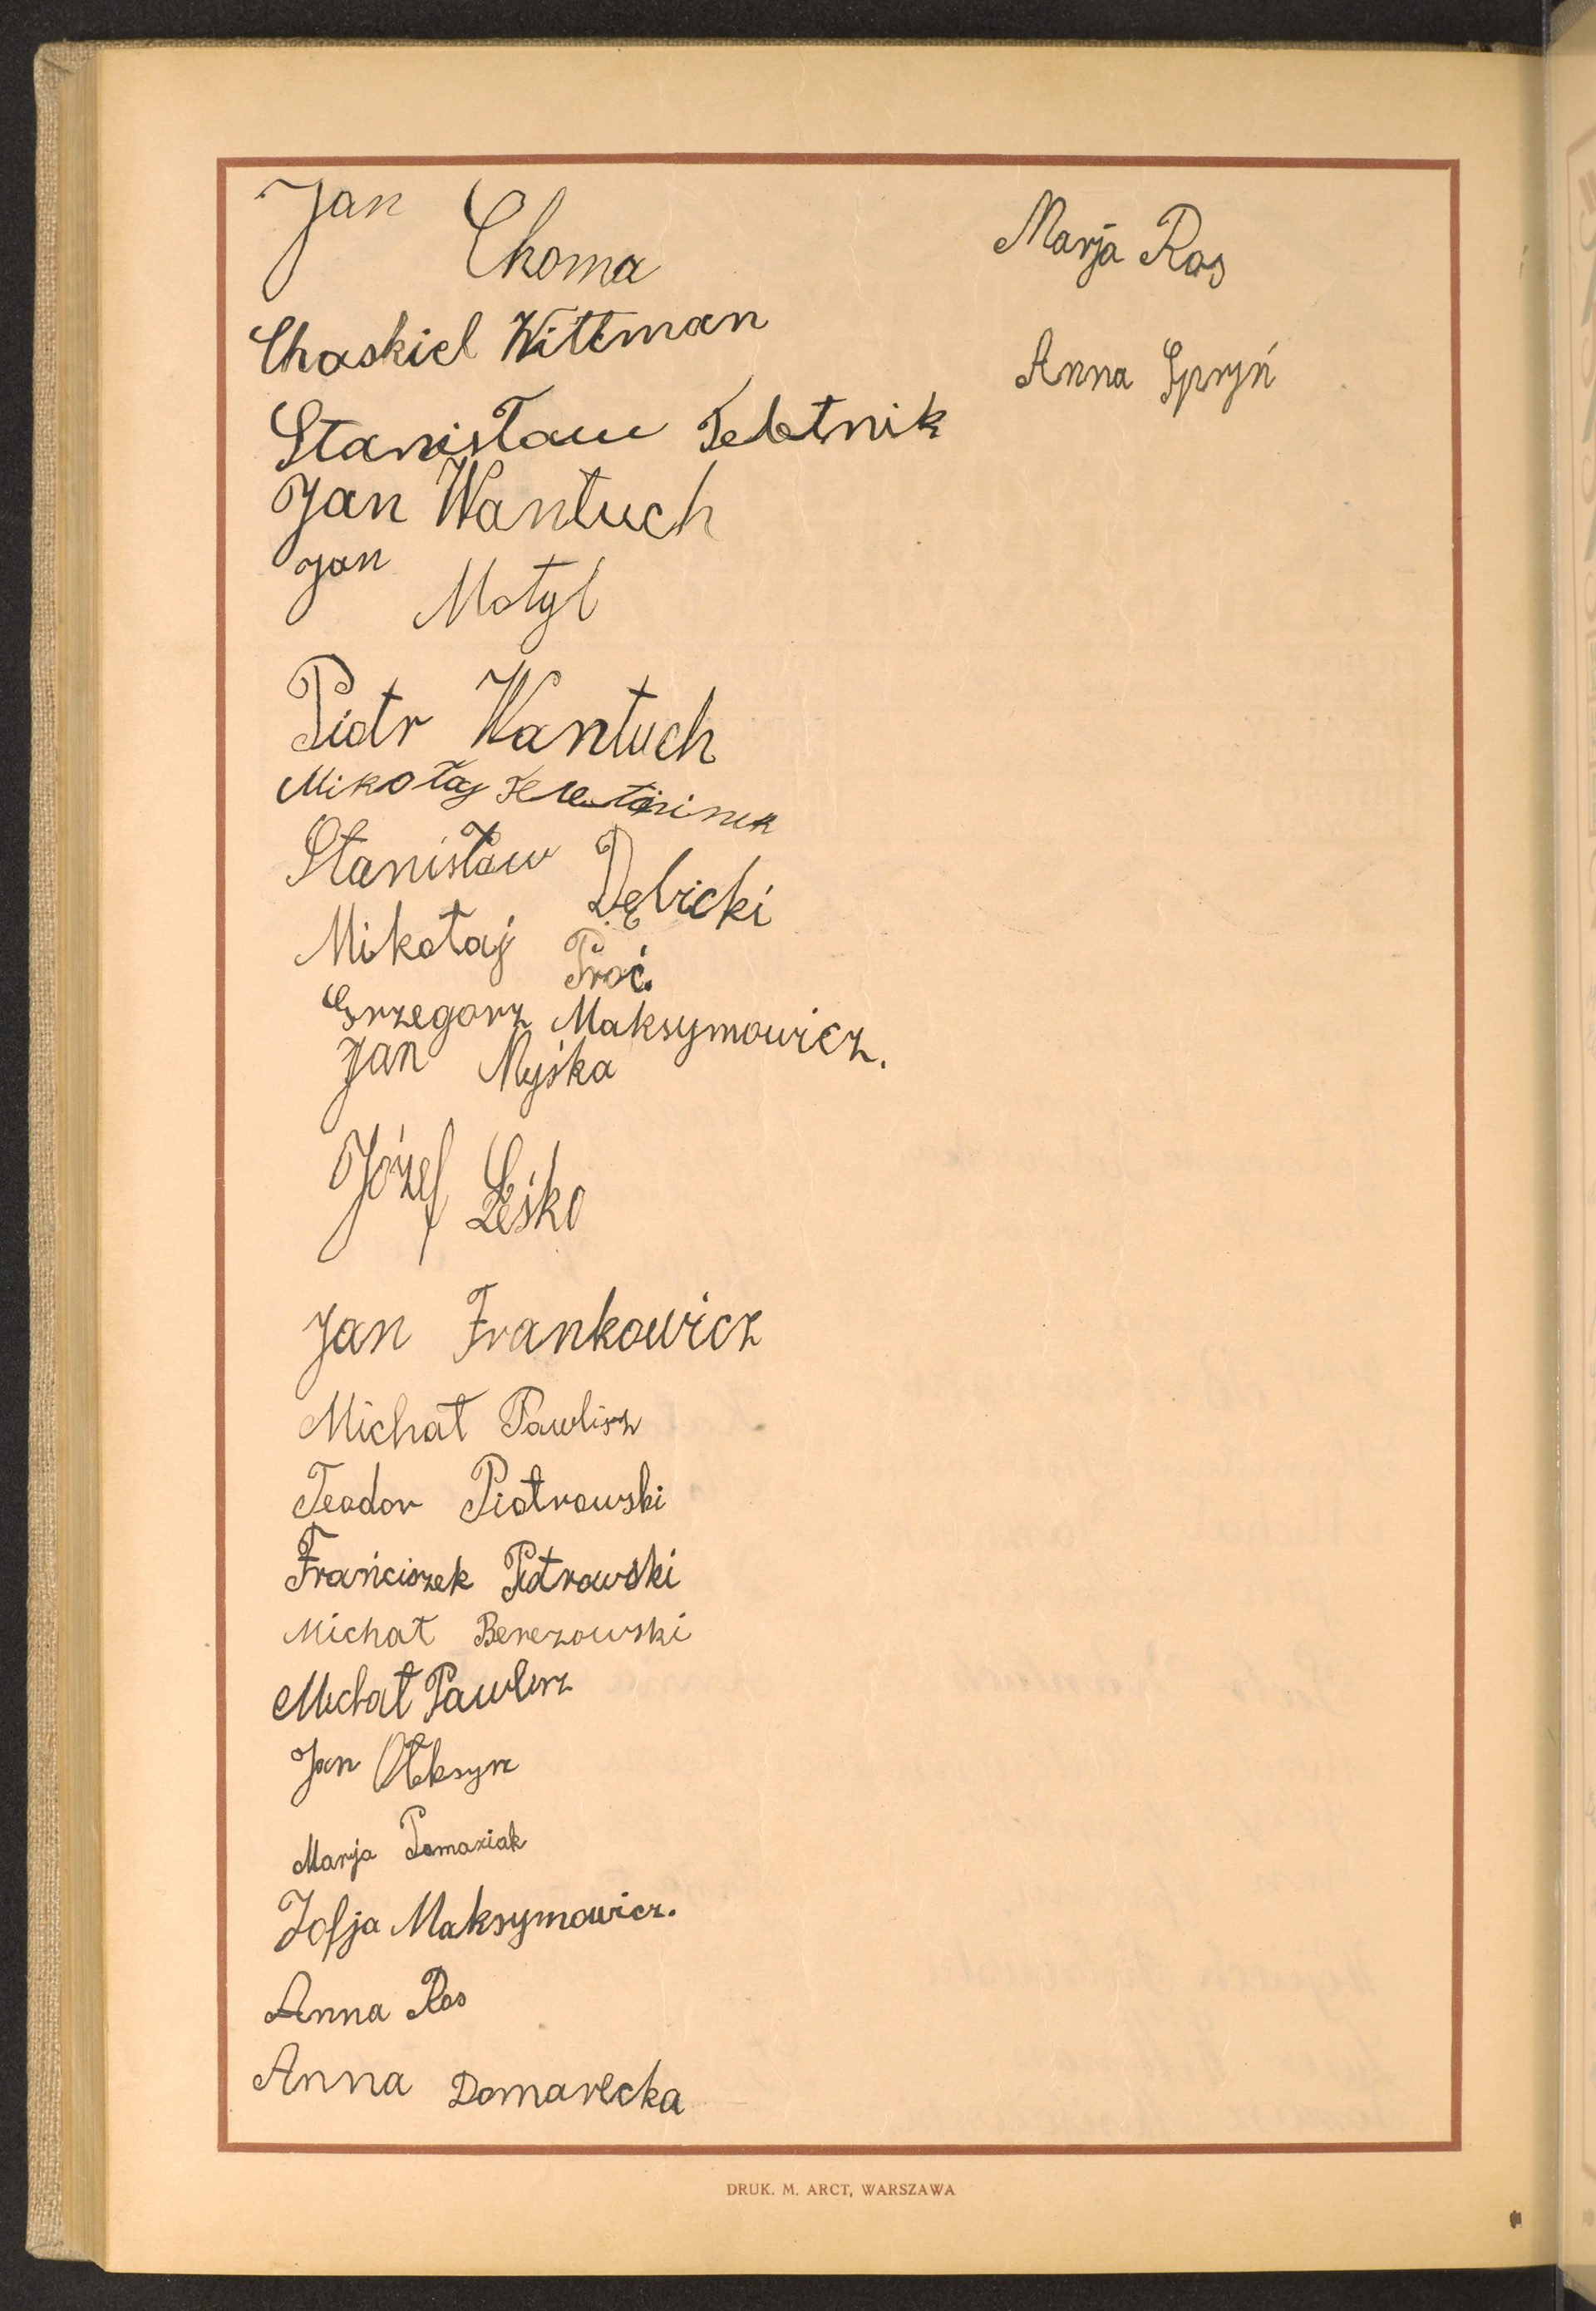 Jan Choma
Chaskiel Wittman
Stanisław Teletnik
Jan Wantuch
Jan Motyl
Piotr Wantuch
Mikołaj
Stanisław Dębicki
Mikołaj Proć.
Grzegorz Maksymowicz.
Jan Myśka
Józef Leśko
Jan Frankowicz
Michał Pawlisz
Teodor Piotrowski
Franciszek Piotrowski
Michał Berezowski
Michał Pawlisz
Jan Oleksyn
Marja Tomaziak
Zofja Maksymowicz.
Anna Ros
Anna Domarecka
Marja Ros
Anna Spryń
DRUK. M. ARCT, WARSZAWA